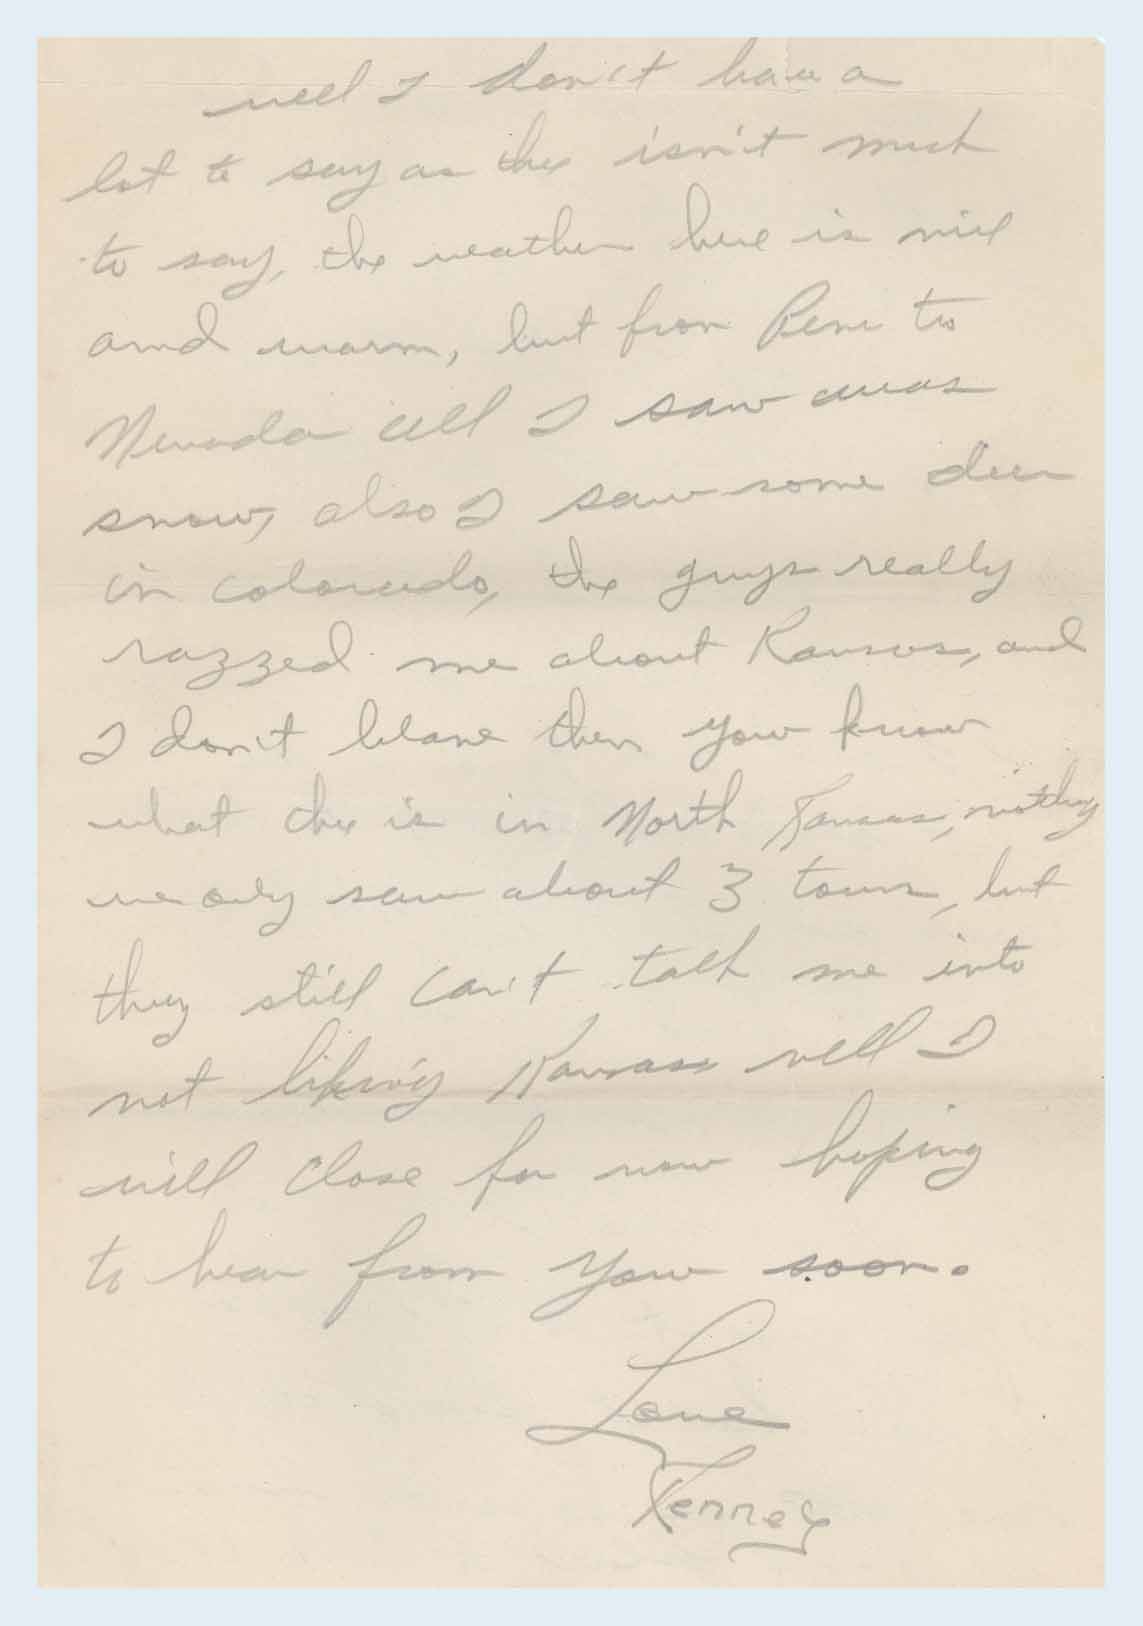 well I don't have a
lot to say as the isn't much
to say, the weather here is nice
and warm, but from Reno to
Nevada all I saw was
snow, also I saw some deer
in colorado, the guys really
razzed me about Kansas, and
I don't blame them you know
what the is in North Kansas, nothing
we only saw about 3 towns, but
they still can't talk me into
not liking Kansas well I
will close for now hoping
to hear from you soon.
Love
Kenney